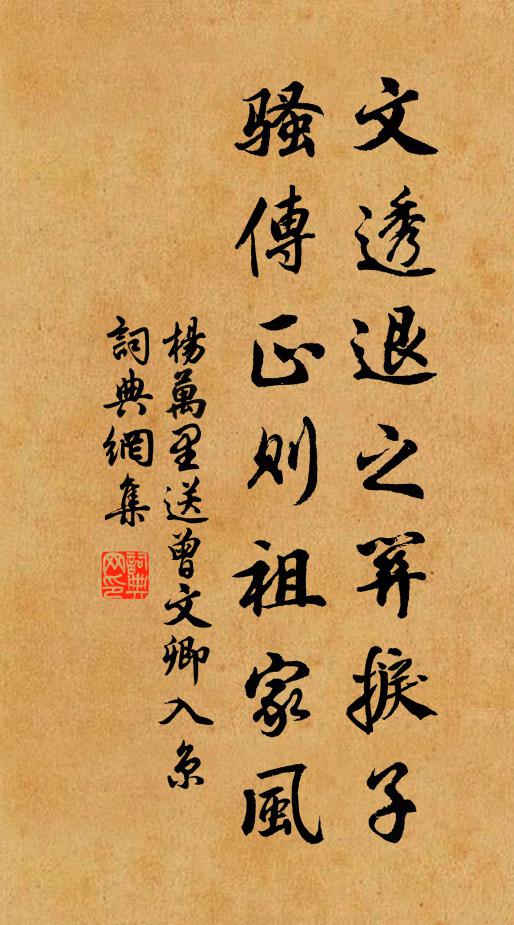 文透退之關捩子
騷傳正則祖家風
楊萬里送曾文卿入京
詞典網集
詞典網印